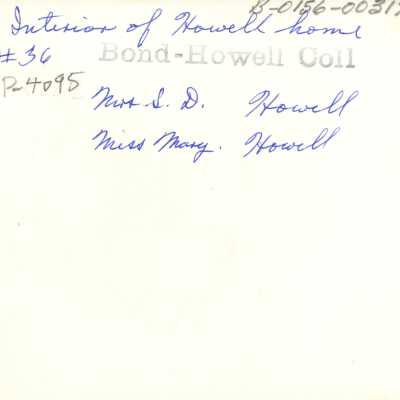 B-0156-00317
Interior of Howell home
#36 Bond-Howell Coll
P-4095
Mrs S. D. Howell
Miss Mary. Howell